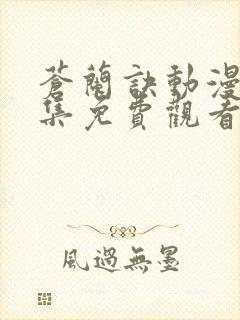 蒼蘭訣動漫
集免費觀看
風過無墨